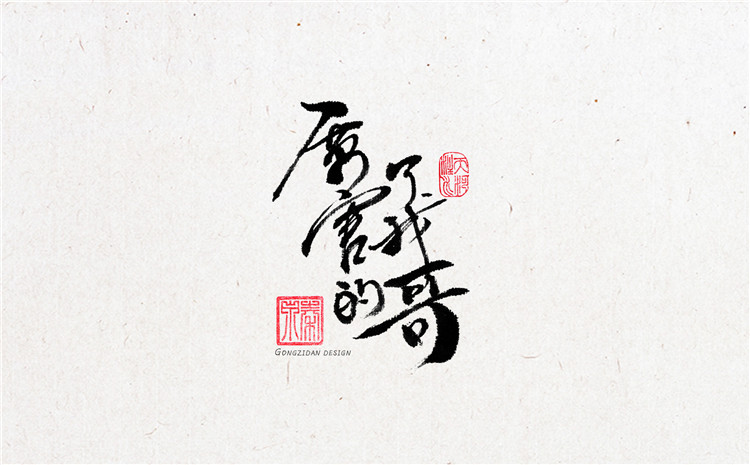 厉害了
我的哥
GONGZIDAN DESIGN